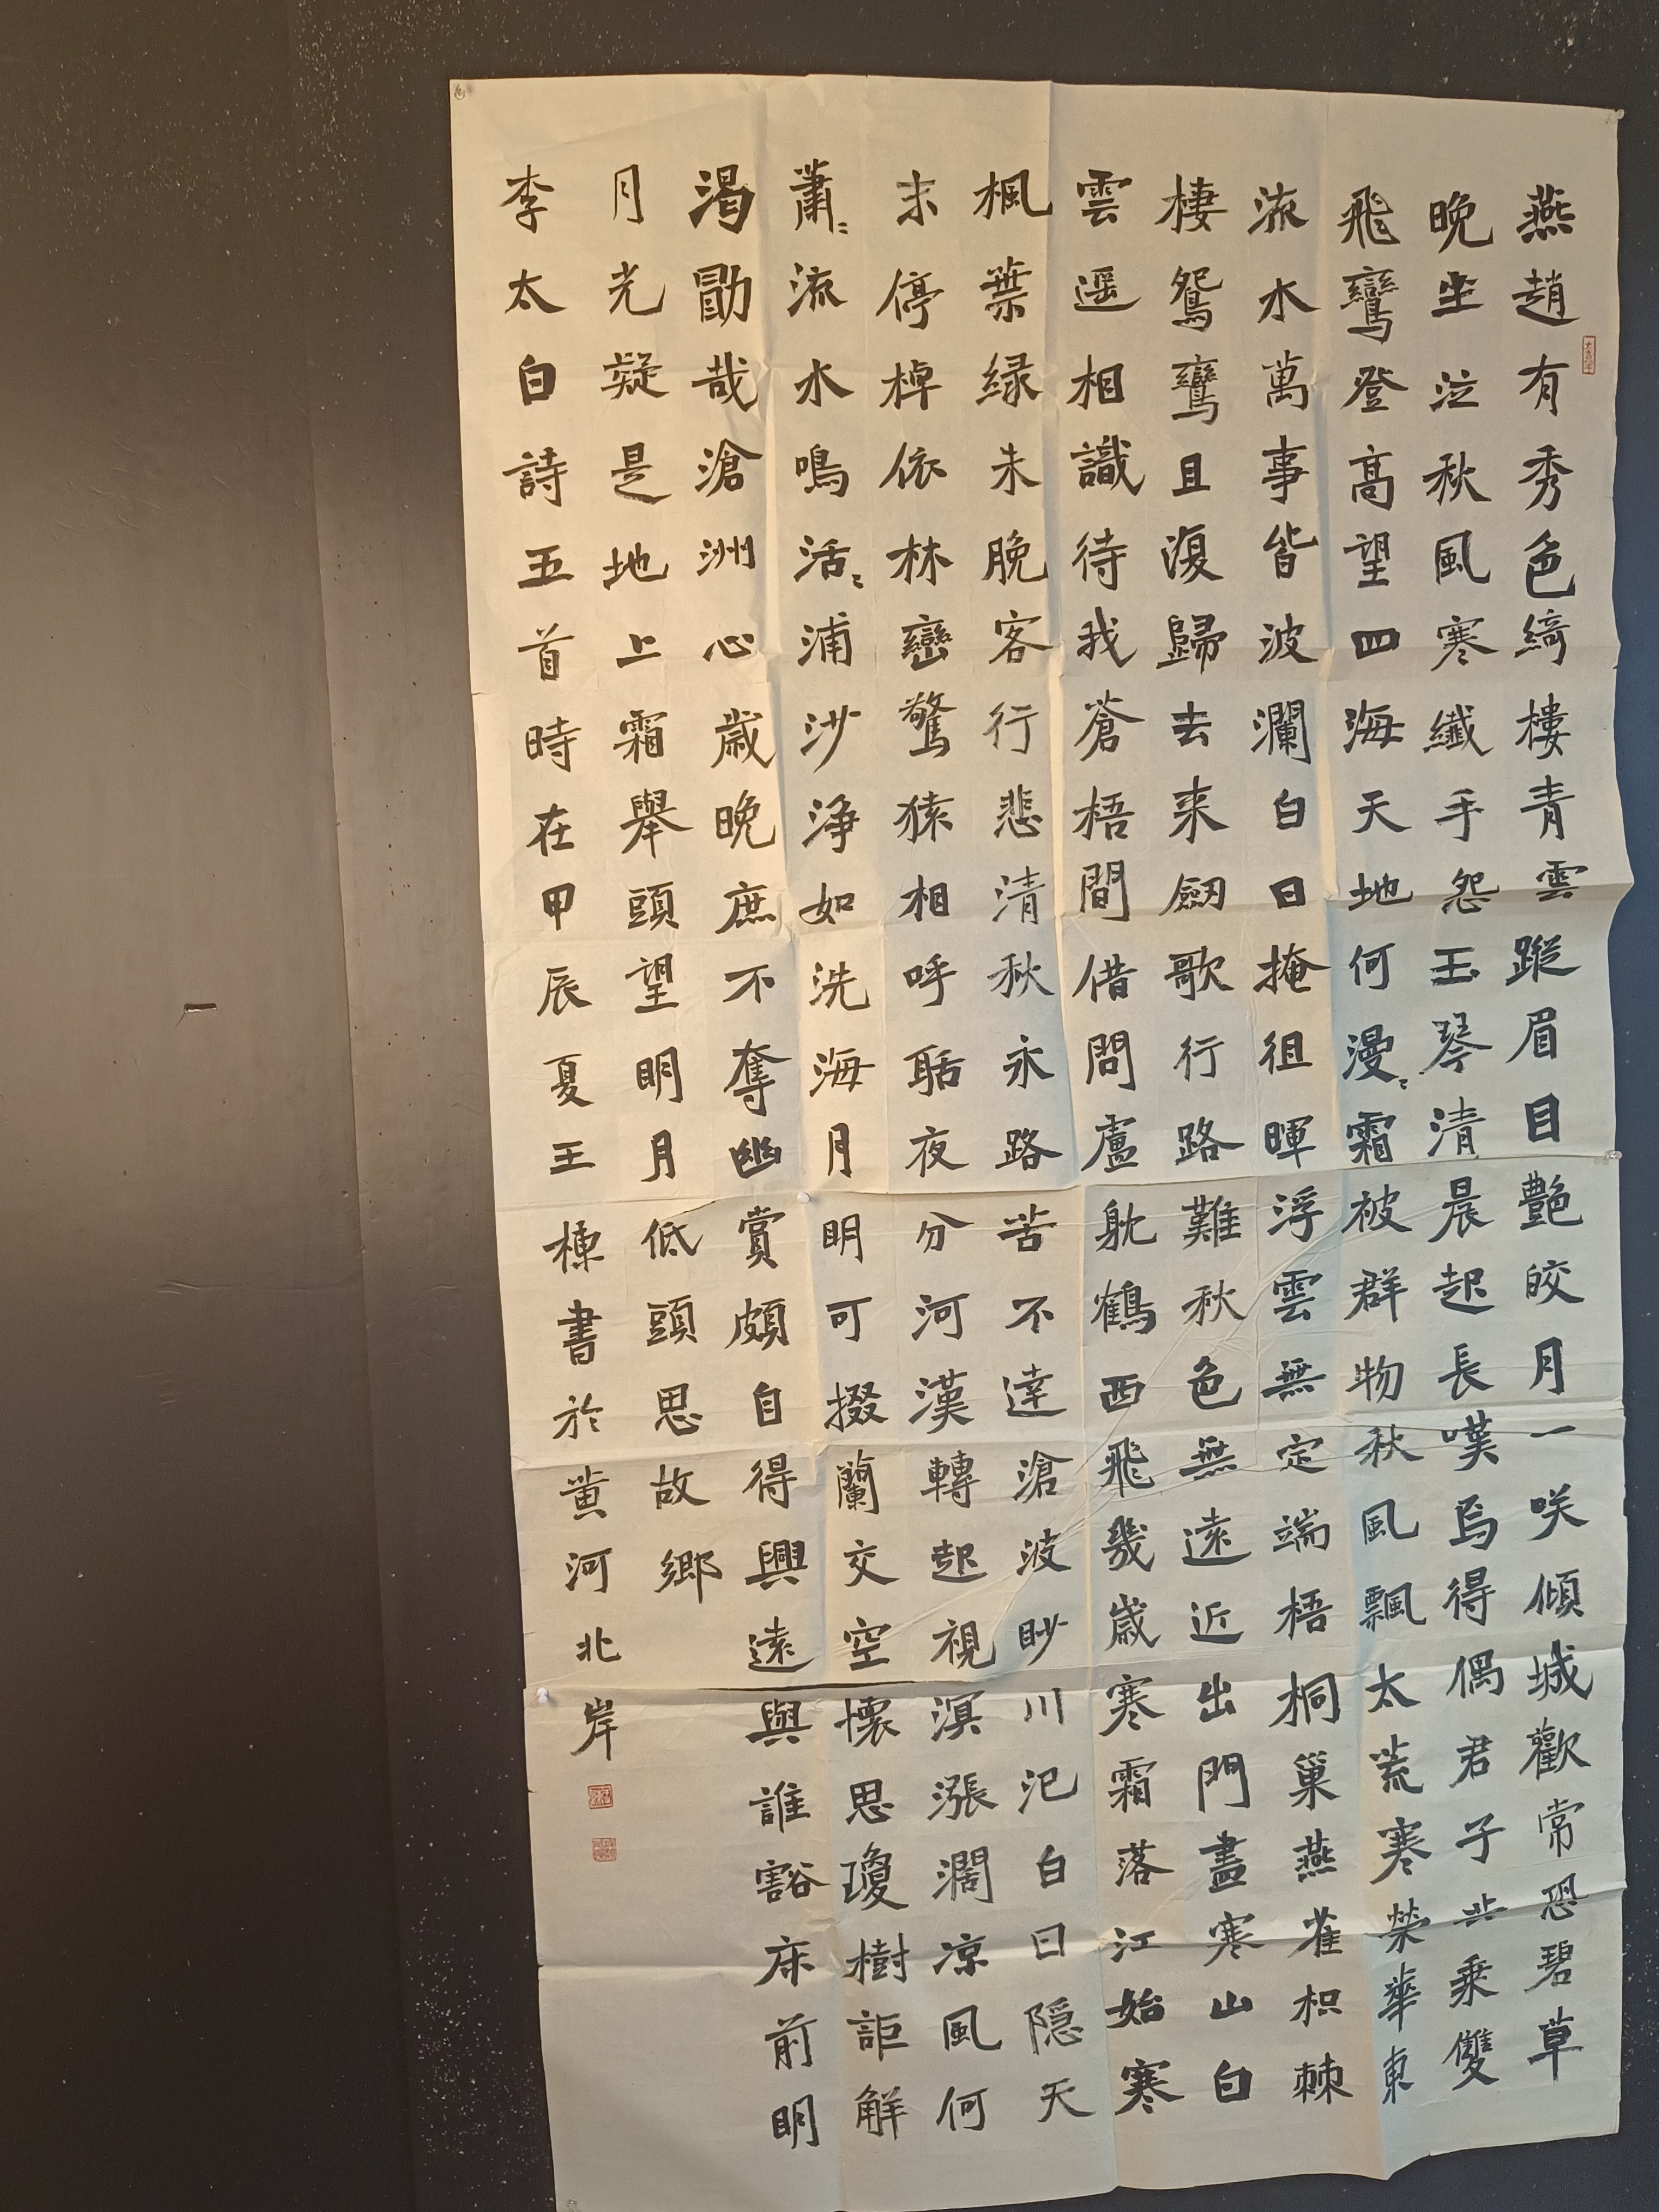 燕趙有秀色綺樓青雲蹤眉目艷皎月一咲傾城歡常恐碧草
晚坐泣秋風寒纖手怨玉琴清晨起長嘆焉得偶君子共乗雙
飛鸞登高望四海天地何漫〻霜被群物秋風飄太荒寒榮華東
流水萬事皆波瀾白日掩徂暉浮雲無定端梧桐巢燕雀枳棘
棲鴛鸞且復歸去来劒歌行路難秋色無遠近出門盡寒山白
雲遥相識待我蒼梧間借問盧躭鶴西飛幾歲寒霜落江始寒
楓葉緑未脫客行悲清秋永路苦不達滄波眇川汜白日隱天
末停棹依林巒驚猿相呼聒夜分河漢轉起視溟漲濶凉風何
蕭〻流水鳴活〻浦沙淨如洗海月明可掇蘭交空懷思瓊樹詎解
渴勖哉滄洲心歲晚庶不奪幽賞頗自得興遠與誰豁床前明
月光疑是地上霜舉頭望明月低頭思故鄉
李太白詩五首時在甲辰夏王棟書於黄河北岸